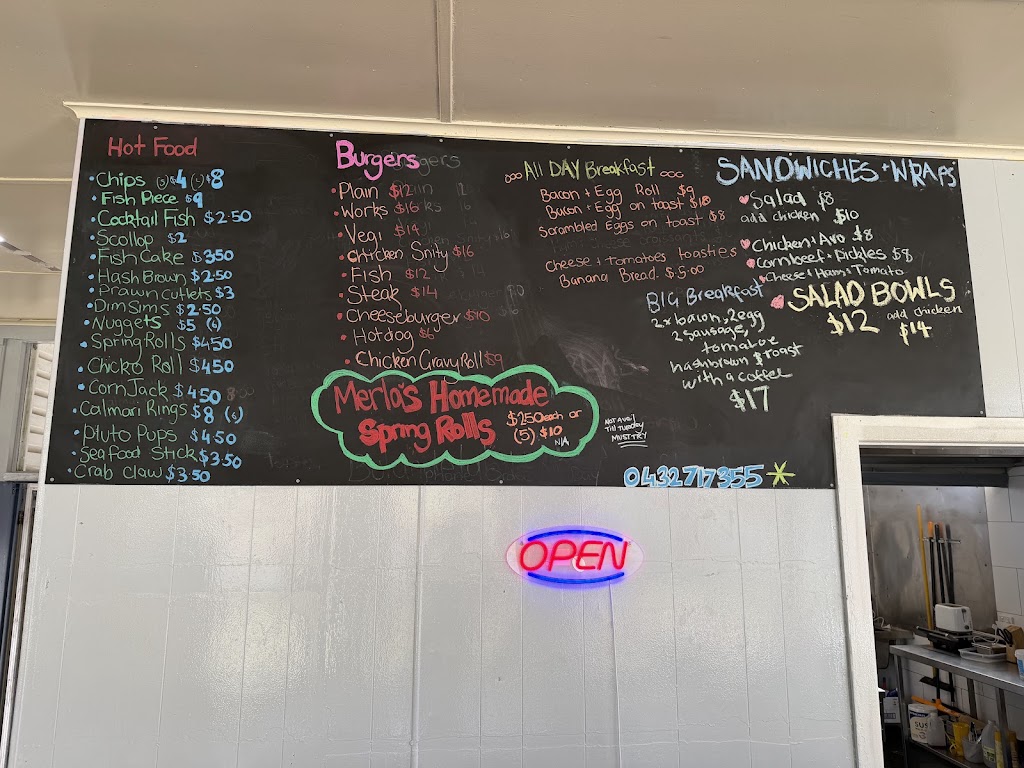 Hot Food
Chips (s) $4 (L) $8
Fish Piece $9
Cocktail Fish $2.50
Scollop $2
Fish Cake $3.50
Hash Brown $2.50
Prawn Cutlets $3
Dim Sims $2.50
Nuggets $5 (6)
Spring Rolls $4.50
Chicko Roll $4.50
Corn Jack $4.50
Calmari Rings $8 (6)
Pluto Pups $4.50
Sea Food Stick $3.50
Crab Claw $3.50
Burgers
Plain $12
Works $16
Vegi $14
Chicken Snity $16
Fish $12
Steak $14
Cheeseburger $10
Hotdog $6
Chicken Gravy Roll $9
Merlo's Homemade
Spring Rolls
$2.50 each or
(5) $10
N/A
NOT AVAIL
TILL TUESDAY
MUST TRY
All DAY Breakfast
Bacon + Egg Roll $9
Bacon + Egg on toast $10
Scrambled Eggs on toast $8
Cheese + Tomatoes toasties
Banana Bread $5.00
BIG Breakfast
2x bacon, 2 egg
2 sausage,
tomatoe
hashbrown $ toast
with a coffee
$17
SANDWICHES + WRAPS
Salad $8
add chicken $10
Chicken + Avo $8
Corn beef + Pickles $8
Cheese + Ham + Tomato
SALAD BOWLS
$12
add chicken
$14
0432717355
OPEN